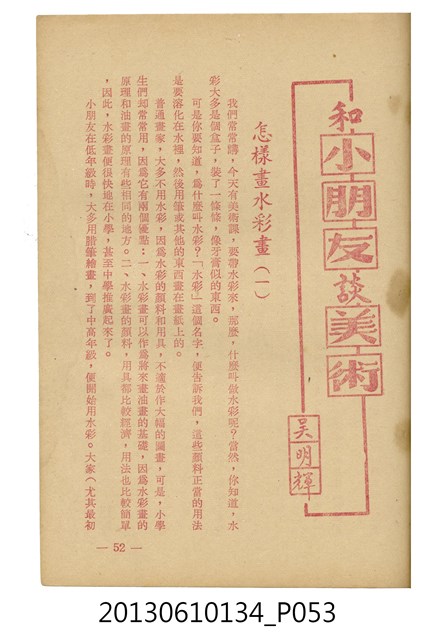 和小朋友談美術
吳明輝
怎樣畫水彩畫(一)
我們常常講,今天有美術課,要帶水彩來,那麼,什麼叫做水彩呢?當然,你知道,水
彩大多是個盒子,裝了一條條,像牙膏似的東西。
可是你要知道,為什麼叫水彩?「水彩」這個名字,便告訴我們,這些顏料正當的用法
是要溶化在水裡,然後用筆或其他的東西畫在畫紙上的。
普通畫家,大多不用水彩,因為水彩的顏料和用具,不適於作大幅的圖畫,可是,小學
生們却常常用,因為它有兩個優點:一、水彩畫可以作為將來畫油畫的基礎,因為水彩畫的
原理和油畫的原理有些相同的地方。二、水彩畫的顏料,用具都比較經濟,用法也比較簡單
,因此,水彩畫便很快地在小學,甚至中學推廣起來了。
小朋友在低年級時,大多用腊筆繪畫,到了中高年級,便開始用水彩。大家(尤其最初
— 52 —
20130610134_P053